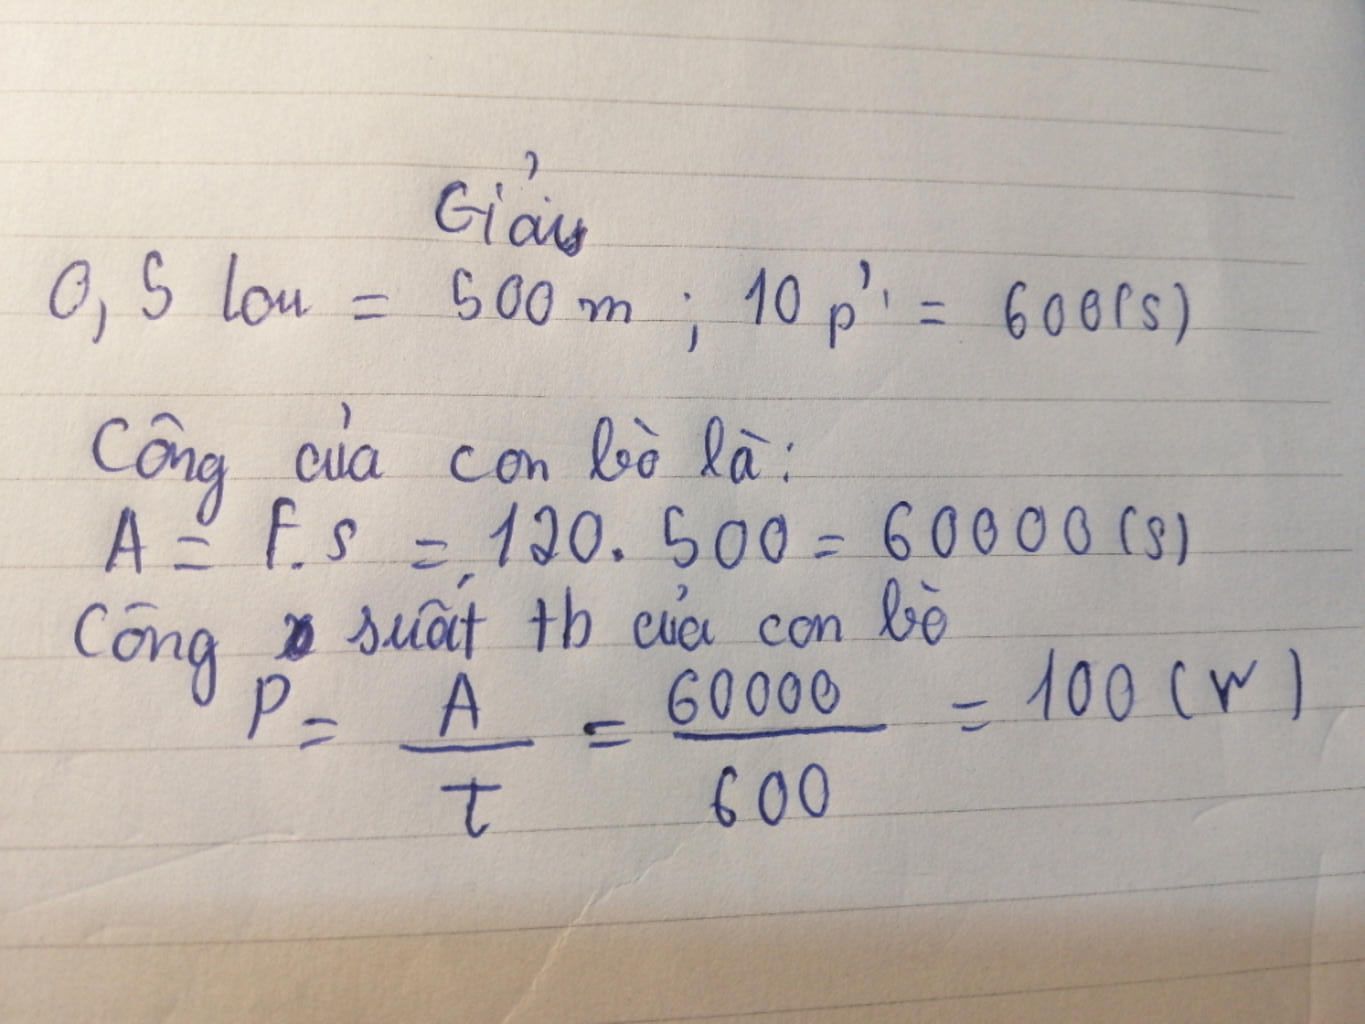 Giải
0,5 km = 500 m ; 10 p' = 600(s)
Công của con bò là:
A = F.s = 120. 500 = 60000 (s)
Công suất tb của con bò
P = A / t = 60000 / 600 = 100 (W)